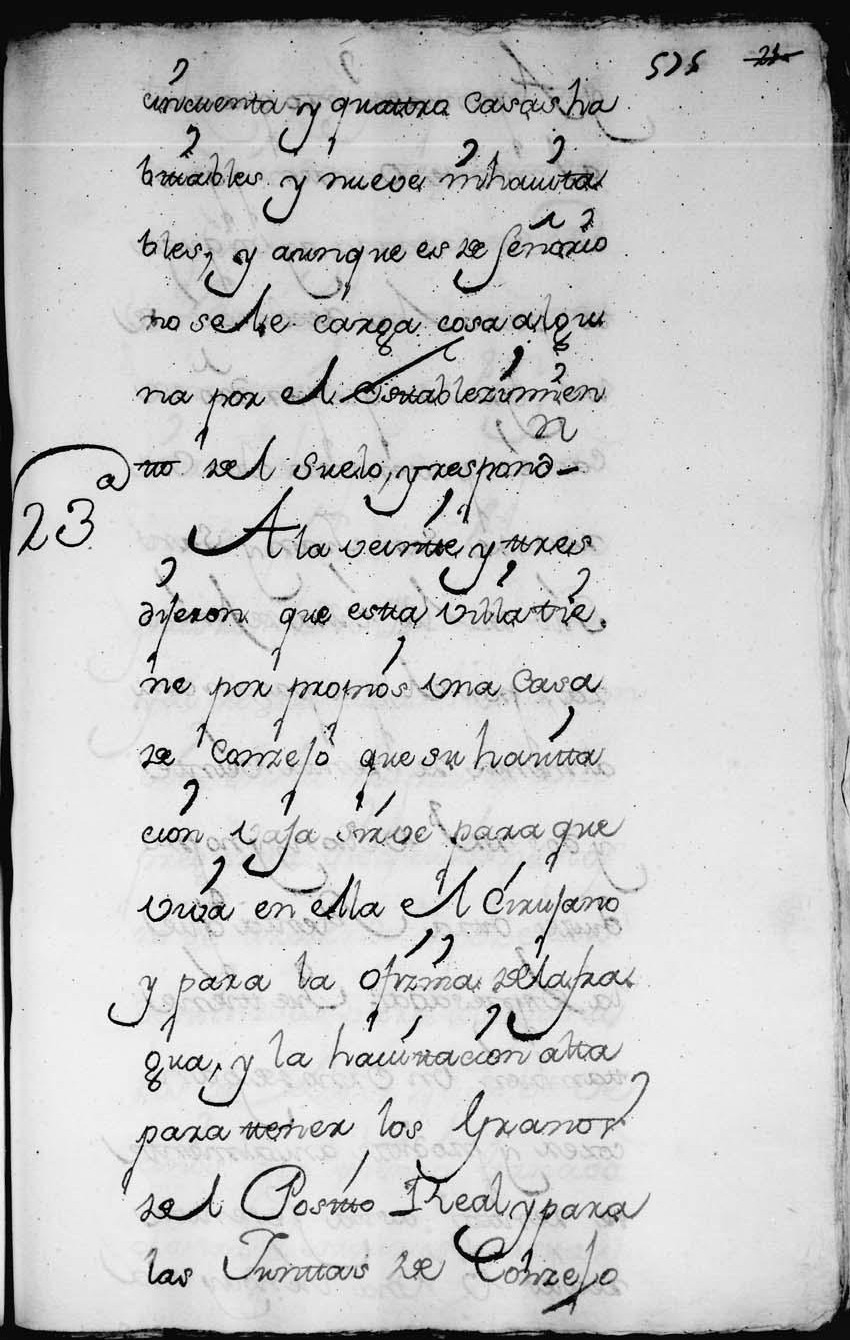 575 21
cincuenta y quattro casas ha
bitables y nueve inhavita
bles, y aunque es de Señorio
no se le carga cosa algu
na por el Establezimien
tto del suelo, y respond-
23ª
A la veintte y ttres
dijeron que estta Villa tie.
ne por propios vna Casa
de Conzejo que su havitta
cion vaja sirve para que
viva en ella el Cirujano
y para la ofizina de la fra
gua, y la havittacion alta
para ttener los Granos
del Positto Real y para
las Junttas de Conzejo